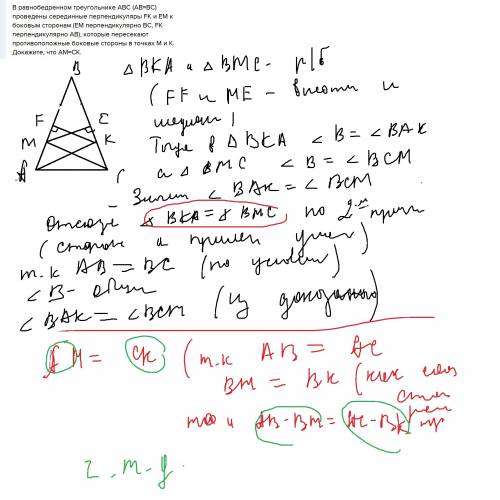 В равнобедренном треугольнике ABC (AB=BC)
проведены серединные перпендикуляры FK и EM к
боковым сторонам (EM перпендикулярно BC, FK
перпендикулярно AB), которые пересекают
противоположные боковые стороны в точках M и K.
Докажите, что AM=CK.
B
△ BKA и △ BMC - р/б
(FF и ME - высоты и
медиан)
F E
M K
Тогда в △ BKA ∠ B = ∠ BAK
а △ BMC ∠ B = ∠ BCM
A C
- Значит ∠ BAK = ∠ BCM
Отсюда △ BKA = △ BMC по 2-м призн
(сторон и прилеж углам)
т.к AB = BC (по условию)
∠ B - общий
∠ BAK = ∠ BCM (из доказанного)
AM = CK (т.к AB = AC
BM = BK (как
то и AB - BM = AC - BK
ч.т.д.